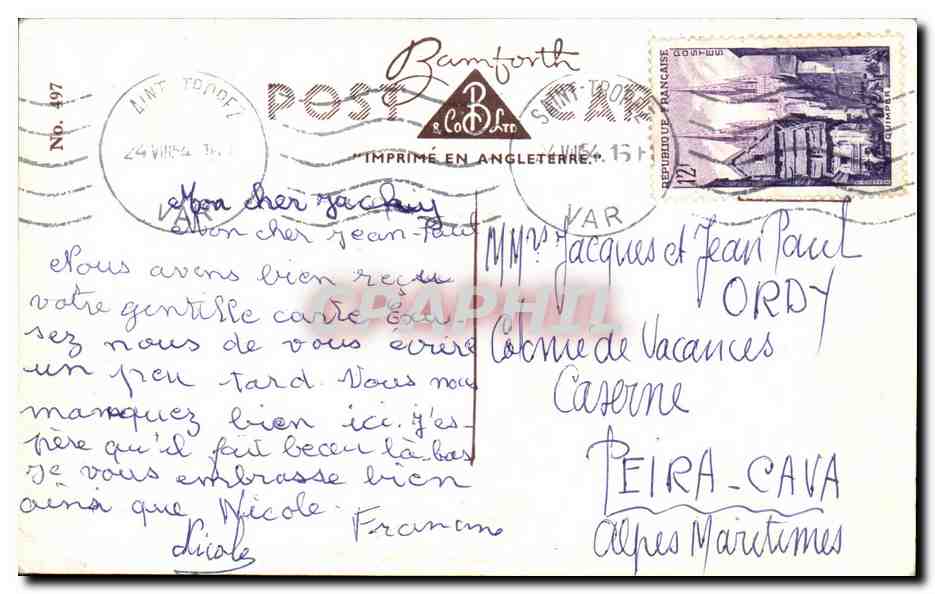 No. 497
Bamforth
POST CARD
B
& Co Ltd
"IMPRIMÉ EN ANGLETERRE."
SAINT-TROPEZ
24 VIII 54
VAR
SAINT-TROPEZ
VAR
RÉPUBLIQUE FRANÇAISE
POSTES
12F
QUIMPER
Mon cher Jacky
Mon cher Jean-Paul
Nous avons bien reçu
votre gentille carte Excu-
sez nous de vous écrire
un peu tard. Vous nous
manquez bien ici. J'es-
père qu'il fait beau là-bas
Je vous embrasse bien
ainsi que Nicole.
Francine
Nicole
MMrs Jacques et Jean Paul
ORDY
Colonie de Vacances
Caserne
PEIRA-CAVA
Alpes Maritimes
CPAPHIL